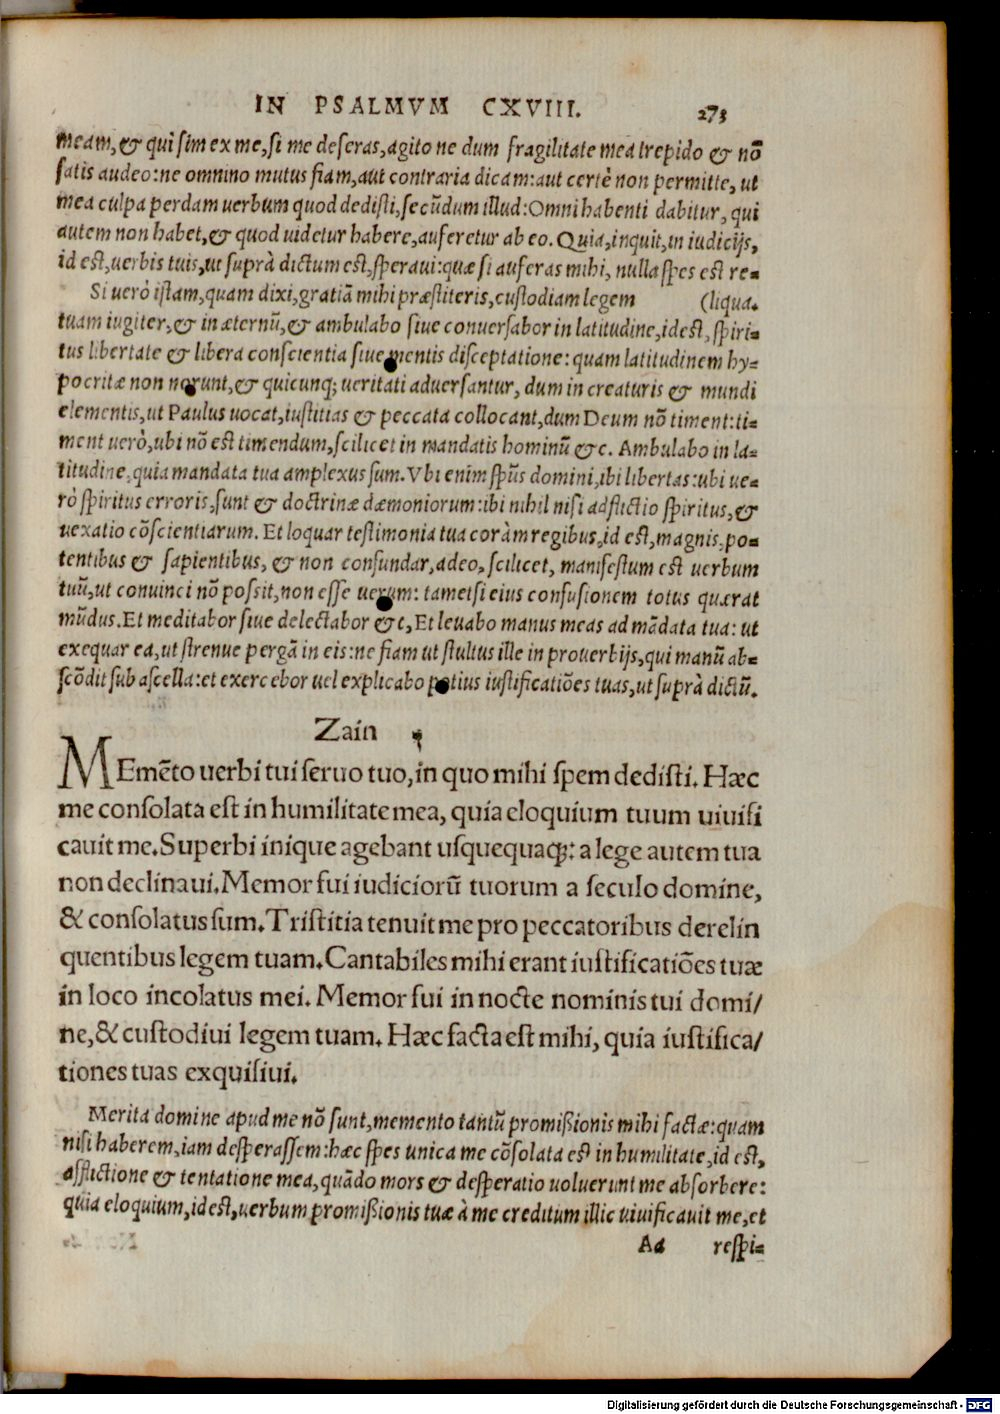 IN PSALMVM CXVIII. 273
meam,& qui sim ex me,si me deseras,agito ne dum fragilitate mea trepido & nō
satis audeo:ne omnino mutus fiam,aut contraria dicam:aut certè non permitte, ut
mea culpa perdam uerbum quod dedisti,secūdum illud:Omni habenti dabitur, qui
autem non habet,& quod uidetur habere,auferetur ab eo. Quia,inquit,in iudicijs,
id est,uerbis tuis,ut suprà dictum est,speraui:quæ si auferas mihi, nulla spes est re-
Si uerò istam,quam dixi,gratiā mihi præstiteris,custodiam legem (liqua.
tuam iugiter,& in æternū,& ambulabo siue conuersabor in latitudine,id est, spiri-
tus libertate & libera conscientia siue mentis disceptatione: quam latitudinem hy-
pocritæ non norunt,& quicunq; ueritati aduersantur, dum in creaturis & mundi
elementis,ut Paulus uocat,iustitias & peccata collocant,dum Deum nō timent:ti-
ment uerò,ubi nō est timendum,scilicet in mandatis hominū &c. Ambulabo in la-
titudine,quia mandata tua amplexus sum. Vbi enim spūs domini,ibi libertas:ubi ue-
rò spiritus erroris,sunt & doctrinæ dæmoniorum:ibi nihil nisi adflictio spiritus,&
uexatio cōscientiarum. Et loquar testimonia tua coràm regibus,id est,magnis,po-
tentibus & sapientibus, & non confundar,adeo,scilicet, manifestum est uerbum
tuū,ut conuinci nō possit,non esse uerum: tametsi eius confusionem totus quærat
mūdus.Et meditabor siue delectabor &c,Et leuabo manus meas ad mādata tua: ut
exequar ea,ut strenue pergā in eis:ne fiam ut stultus ille in prouerbijs,qui manū ab-
scōdit sub ascella:et exercebor uel explicabo potius iustificatiōes tuas,ut suprà dictū.
Zain
MEmēto uerbi tui seruo tuo,in quo mihi spem dedisti. Hæc
me consolata est in humilitate mea, quia eloquium tuum uiuifi
cauit me.Superbi inique agebant usquequaq;: a lege autem tua
non declinaui.Memor fui iudiciorū tuorum a seculo domine,
& consolatus sum.Tristitia tenuit me pro peccatoribus derelin
quentibus legem tuam.Cantabiles mihi erant iustificatiōes tuæ
in loco incolatus mei. Memor fui in nocte nominis tui domi/
ne,& custodiui legem tuam. Hæc facta est mihi, quia iustifica/
tiones tuas exquisiui.
Merita domine apud me nō sunt,memento tantū promißionis mihi factæ:quam
nisi haberem,iam desperassem:hæc spes unica me cōsolata est in humilitate,id est,
afflictione & tentatione mea,quādo mors & desperatio uoluerunt me absorbere:
quia eloquium,id est,uerbum promißionis tuæ à me creditum illic uiuificauit me,et
Aa respi-
Digitalisierung gefördert durch die Deutsche Forschungsgemeinschaft - DFG